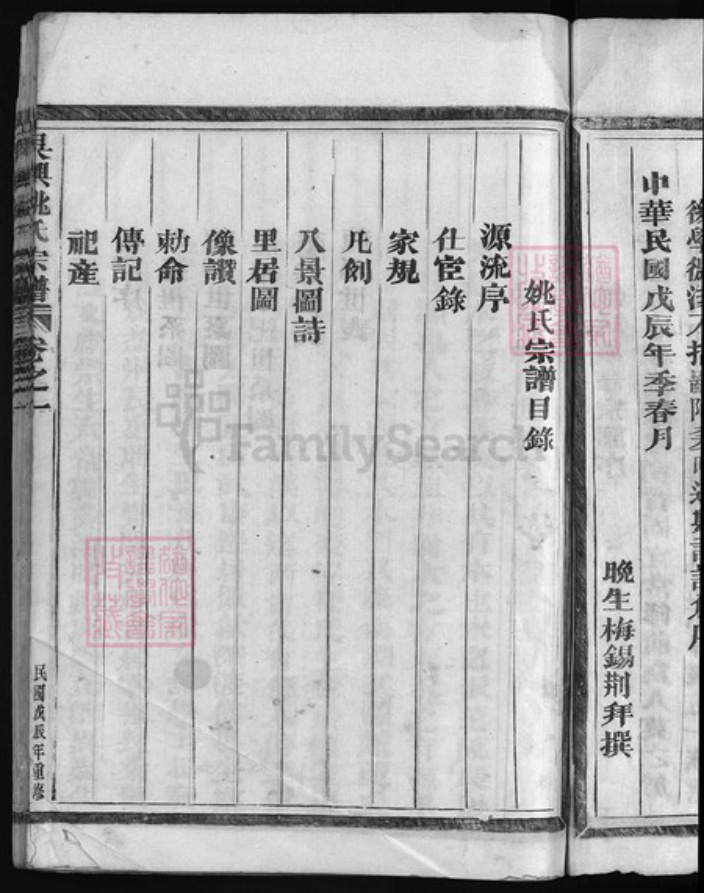 中華民國戊辰年季春月
晚生梅錫荆拜撰
姚氏宗譜目錄
源流序
仕宦錄
家規
凡創
八景圖詩
里居圖
像讚
勅命
傳記
祀產
吳興姚氏宗譜 卷之一
民國戊辰年重修
FamilySearch